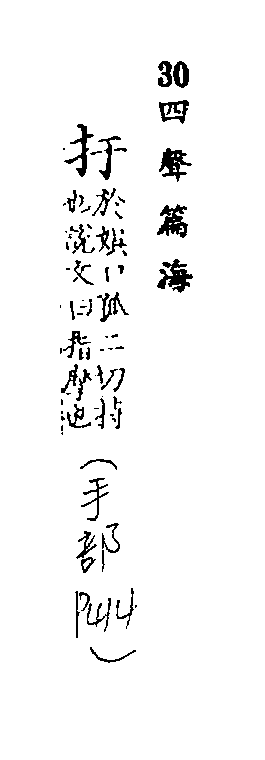 30四聲篇海
扜
於娱口孤二切持
也說文曰指摩也
(手部
P44)